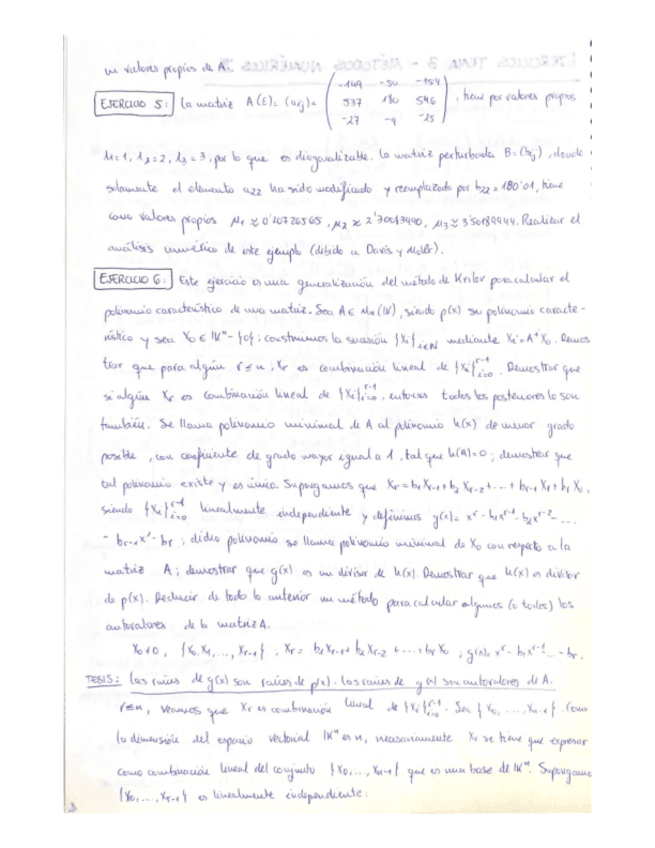 un valores propios de A.
EJERCICIO 5: La matriz A(ε)=(aij)= , tiene por valores propios
-149 -50 -154
537 180 546
-27 -9 -25
λ1=1, λ2=2, λ3=3, por lo que es diagonalizable. La matriz perturbada B=(bij), donde
solamente el elemento a22 ha sido modificado y reemplazado por b22=180'01, tiene
como valores propios μ1≈0'20726565, μ2≈2'30083490, μ3≈3'50189944. Realizar el
análisis numérico de este ejemplo (debido a Davis y Moler).
EJERCICIO 6: Este ejercicio es una generalización del método de Krilov para calcular el
polinomio característico de una matriz. Sea A∈Mn(IK), siendo p(x) su polinomio caracte-
rístico y sea X0∈IKⁿ-{0}; construimos la sucesión {Xi}i∈N mediante Xi=AⁱX0. Demos
trar que para algún r≤n, Xr es combinación lineal de {Xi}i=0^r-1. Demostrar que
si algún Xr es combinación lineal de {Xi}i=0^r-1, entonces todos los posteriores lo son
también. Se llama polinomio minimal de A al polinomio h(x) de menor grado
posible, con coeficiente de grado mayor igual a 1, tal que h(A)=0; demostrar que
tal polinomio existe y es único. Supongamos que Xr=b1Xr-1+b2Xr-2+...+br-1X1+brX0,
siendo {Xi}i=0^r-1 linealmente independiente y definimos g(x)=x^r-b1x^r-1-b2x^r-2-...
-br-1x¹-br; dicho polinomio se llama polinomio minimal de X0 con respecto a la
matriz A; demostrar que g(x) es un divisor de h(x). Demostrar que h(x) es divisor
de p(x). Deducir de todo lo anterior un método para calcular algunos (o todos) los
autovalores de la matriz A.
X0≠0, {X0,X1,...,Xr-1}; Xr=b1Xr-1+b2Xr-2+...+brX0; g(x)=x^r-b1x^r-1...-br.
TESIS: Las raíces de g(x) son raíces de p(x). Las raíces de g(x) son autovalores de A.
r≤n, veamos que Xr es combinación lineal de {Xi}i=0^r-1. Sea {X0,...,Xn-1}. Como
la dimensión del espacio vectorial IKⁿ es n, necesariamente Xr se tiene que expresar
como combinación lineal del conjunto {X0,...,Xn-1} que es una base de IKⁿ. Supongamo
{X0,...,Xr-1} es linealmente independiente: